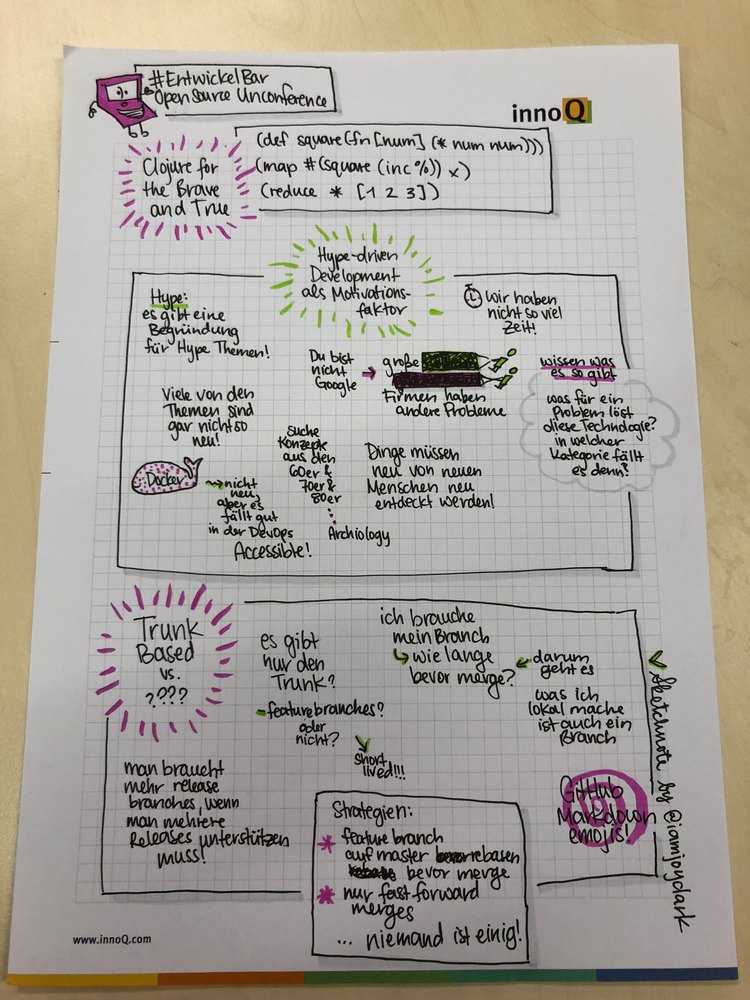 #EntwickelBar
Open Source Unconference
innoQ
Clojure for
the Brave
and True
(def square (fn [num] (* num num)))
(map #(square (inc %)) x)
(reduce * [1 2 3])
Hype-driven
Development
als Motivations-
faktor
Hype:
es gibt eine
Begründung
für Hype Themen!
Wir haben
nicht so viel
Zeit!
Du bist
nicht
Google
große
Firmen haben
andere Probleme
wissen was
es so gibt
was für ein
Problem löst
diese Technologie?
in welcher
Kategorie fällt
es denn?
Viele von den
Themen sind
gar nicht so
neu!
Docker
nicht
neu,
aber es
fällt gut
in der DevOps
Accessible!
suche
Konzepte
aus den
60er &
70er &
80er
Archiology
Dinge müssen
neu von neuen
Menschen neu
entdeckt werden!
Trunk
Based
vs.
????
es gibt
nur den
Trunk?
featurebranches?
oder
nicht?
short
lived!!!
ich brauche
mein Branch
wie lange
bevor merge?
darum
geht es
was ich
lokal mache
ist auch ein
Branch
man braucht
mehr release
branches, wenn
man mehrere
Releases unterstützen
muss!
Strategien:
* feature branch
auf master bevor rebasen
rebase bevor merge
* nur fast forward
merges
... niemand ist einig!
GitHub
Markdown
emojis!
Sketchnote by @iamjoydark
www.innoQ.com